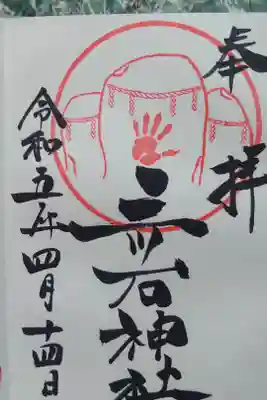 奉拝
三石神社
令和五年四月十四日